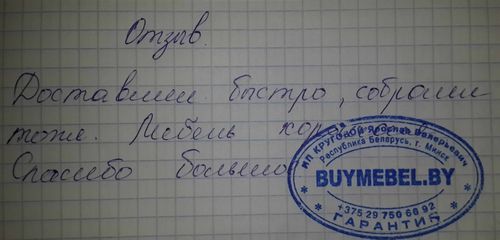 Отзыв.
Доставили быстро, собрали
тоже. Мебель
Спасибо большо
ИП КРУГОВОЙ Ярослав Валерьевич
Республика Беларусь, г. Минск
BUYMEBEL.BY
+375 29 750 66 92
ГАРАНТИЯ